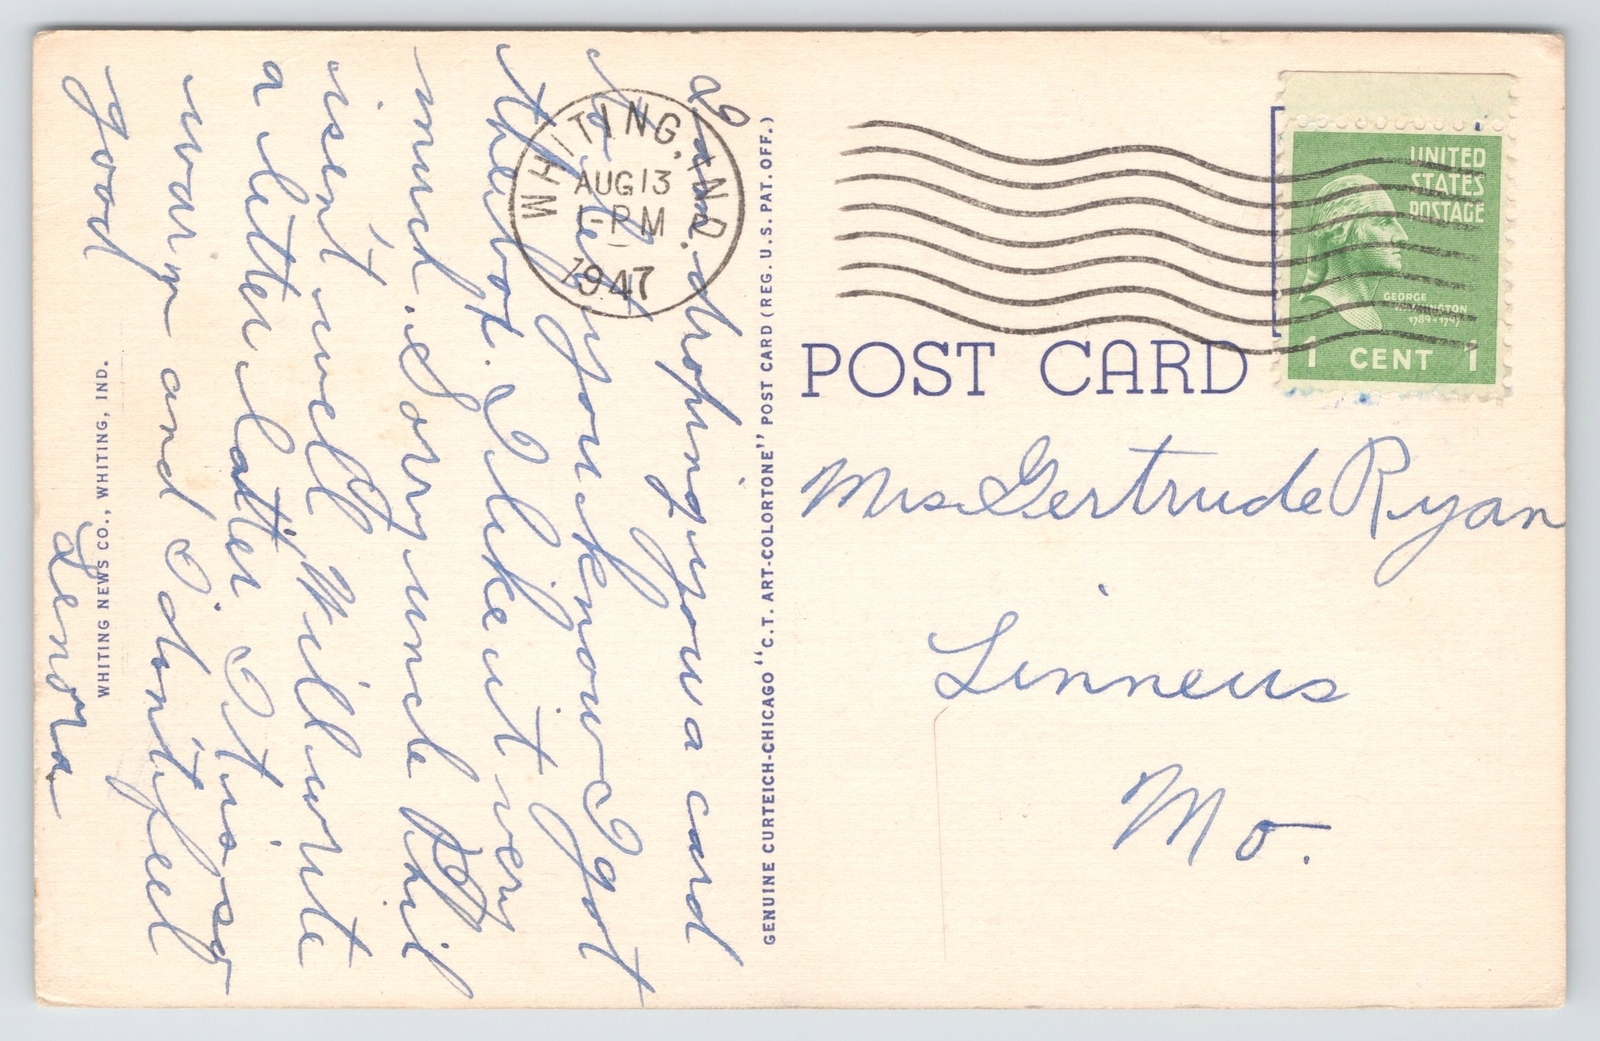 I am droping you a card
to let you know I got
the box. I like it very
much. Sorry uncle Phil
isen't well Will write
a letter latter It is so
warm and I don't feel
good
Lenora
WHITING NEWS CO., WHITING, IND.
GENUINE CURTEICH-CHICAGO "C.T. ART-COLORTONE" POST CARD (REG. U.S. PAT. OFF.)
WHITING, IND.
AUG 13
1-PM
1947
UNITED
STATES
POSTAGE
GEORGE
WASHINGTON
1789-1797
1 CENT 1
POST CARD
Mrs Gertrude Ryan
Linneus
Mo.